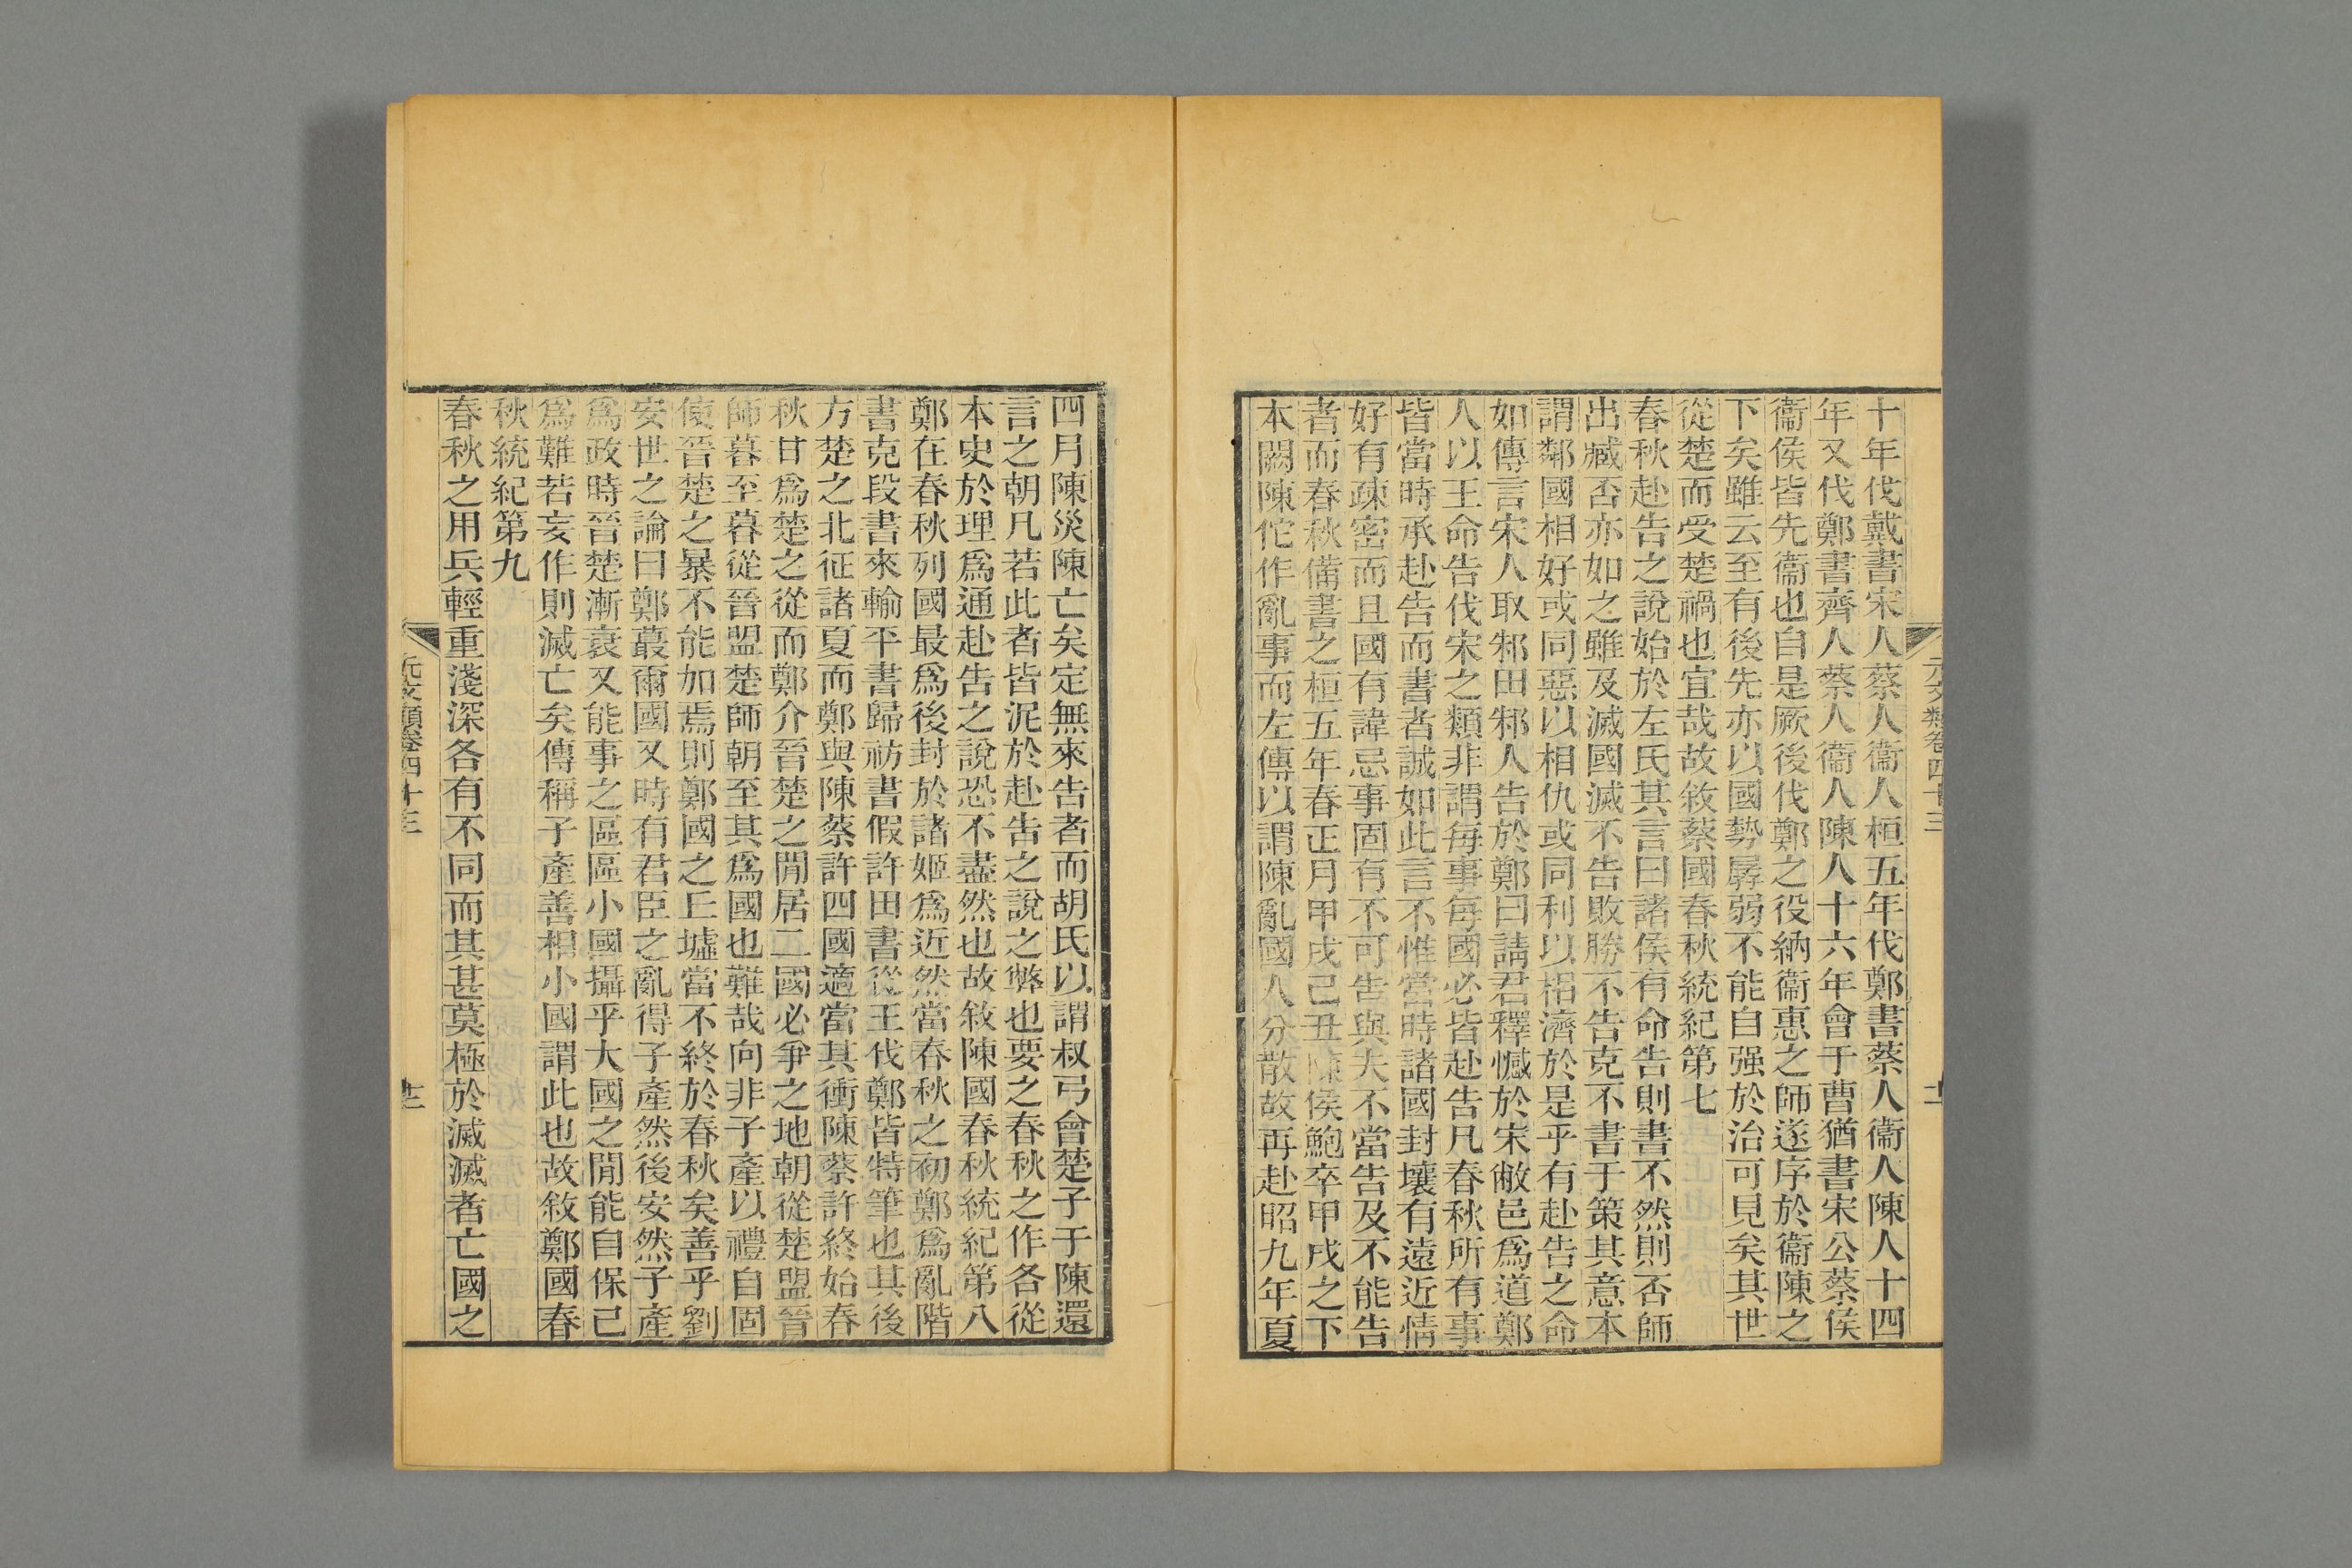 十年伐戴書宋人蔡人衞人桓五年伐鄭書蔡人衞人陳人十四
年又伐鄭書齊人蔡人衞人陳人十六年會于曹猶書宋公蔡侯
衞侯皆先衞也自是厥後伐鄭之役納衞惠之師遂序於衞陳之
下矣雖云至有後先亦以國勢孱弱不能自强於治可見矣其世
從楚而受楚禍也宜哉故敘蔡國春秋統紀第七
春秋赴告之說始於左氏其言曰諸侯有命告則書不然則否師
出臧否亦如之雖及滅國滅不告敗勝不告克不書于策其意本
謂鄰國相好或同惡以相仇或同利以相濟於是乎有赴告之命
如傳言宋人取邾田邾人告於鄭曰請君釋憾於宋敝邑爲道鄭
人以王命告伐宋之類非謂每事每國必皆赴告凡春秋所有事
皆當時承赴告而書者誠如此言不惟當時諸國封壤有遠近情
好有疎密而且國有諱忌事固有不可告與夫不當告及不能告
者而春秋備書之桓五年春正月甲戌己丑陳侯鮑卒甲戌之下
本闕陳佗作亂事而左傳以謂陳亂國人分散故再赴昭九年夏
元文類卷四十三
四月陳災陳亡矣定無來告者而胡氏以謂叔弓會楚子于陳還
言之朝凡若此者皆泥於赴告之說之弊也要之春秋之作各從
本史於理爲通赴告之說恐不盡然也故敘陳國春秋統紀第八
鄭在春秋列國最爲後封於諸姬爲近然當春秋之初鄭爲亂階
書克段書來輸平書歸祊書假許田書從王伐鄭皆特筆也其後
方楚之北征諸夏而鄭與陳蔡許四國適當其衝陳蔡許終始春
秋甘爲楚之從而鄭介晉楚之閒居二國必爭之地朝從楚盟晉
師暮至暮從晉盟楚師朝至其爲國也難哉向非子產以禮自固
使晉楚之暴不能加焉則鄭國之丘墟當不終於春秋矣善乎劉
安世之論曰鄭蕞爾國又時有君臣之亂得子產然後安然子產
爲政時晉楚漸衰又能事之區區小國攝乎大國之閒能自保己
爲難若妄作則滅亡矣傳稱子產善相小國謂此也故敘鄭國春
秋統紀第九
春秋之用兵輕重淺深各有不同而其甚莫極於滅滅者亡國之
元文類卷四十三